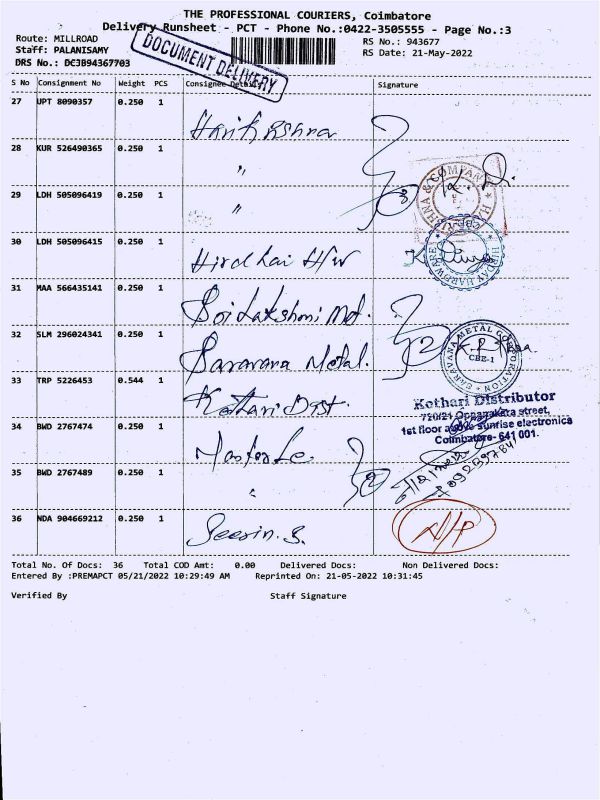 THE PROFESSIONAL COURIERS, Coimbatore
Delivery Runsheet - PCT - Phone No.:0422-3505555 - Page No.:3
Route: MILLROAD
Staff: PALANISAMY
DRS No.: DCJB94367703
RS No.: 943677
RS Date: 21-May-2022
DOCUMENT DELIVERY
S No Consignment No Weight PCS Consignee Details Signature
27 UPT 8090357 0.250 1
28 KUR 526490365 0.250 1 "
29 LDH 505096419 0.250 1 "
30 LDH 505096415 0.250 1 H/W
31 MAA 566435141 0.250 1 Sri Lakshmi Met.
32 SLM 296024341 0.250 1 Saravana Metal.
33 TRP 5226453 0.544 1 Kothari Dist.
34 BWD 2767474 0.250 1
35 BWD 2767489 0.250 1 "
36 NDA 904669212 0.250 1
3
2
2
HIRDAY HARDWARE
SARAVANA METAL CORPORATION
CBE-1
Kothari Distributor
720/21 Oppanakara street,
1st floor above sunrise electronics
Coimbatore- 641 001.
N/P
Total No. Of Docs: 36 Total COD Amt: 0.00 Delivered Docs: Non Delivered Docs:
Entered By :PREMAPCT 05/21/2022 10:29:49 AM Reprinted On: 21-05-2022 10:31:45
Verified By Staff Signature